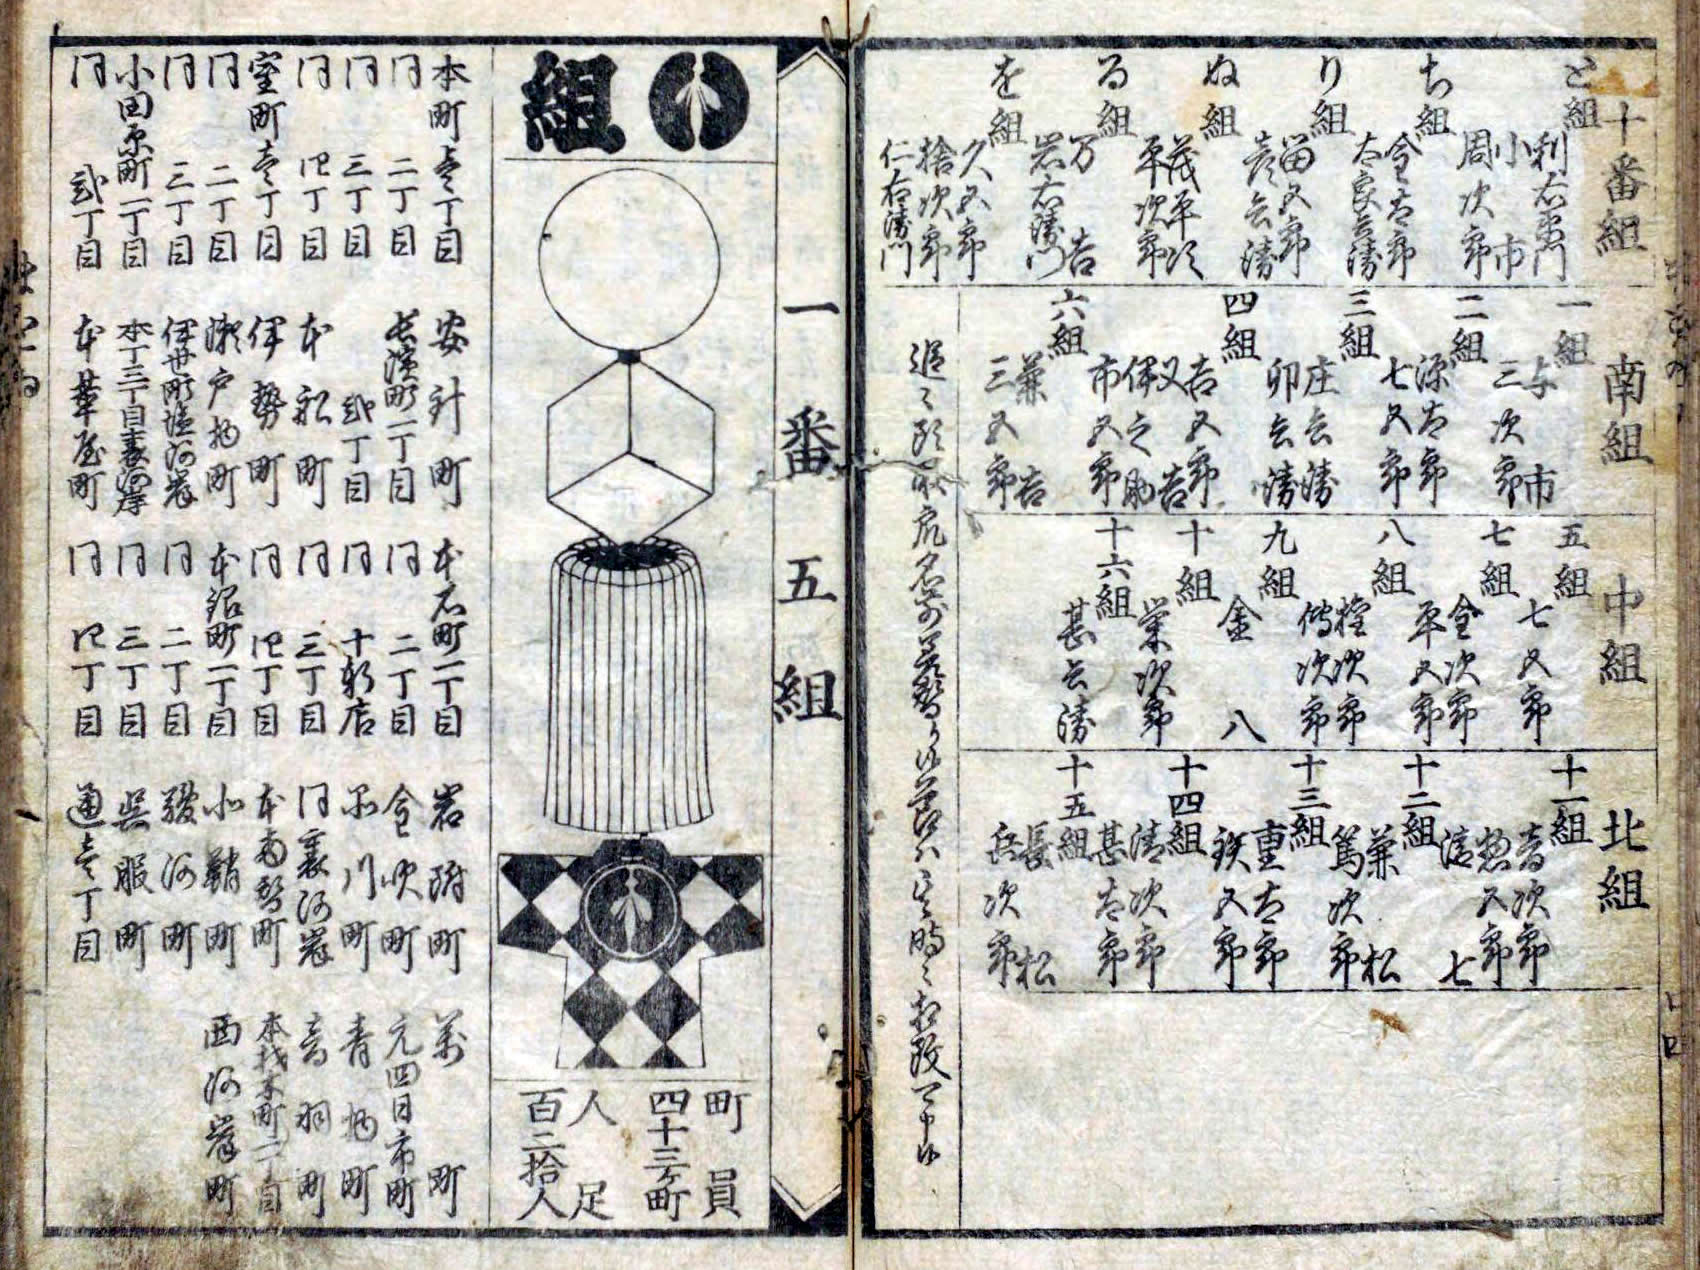 十番組
と組
利右衛門
小市
周次郎
ち組
金太郎
太良兵衛
り組
留五郎
彦兵衛
ぬ組
茂平次
平次郎
る組
万吉
岩右衛門
を組
久五郎
捨次郎
仁右衛門
南組
一組
与市
三次郎
二組
源太郎
七五郎
三組
庄兵衛
卯兵衛
四組
吉五郎
又吉
伊之助
市五郎
六組
兼吉
三五郎
中組
五組
七五郎
七組
金次郎
平五郎
八組
権次郎
傳次郎
九組
金八
十組
栄次郎
十六組
甚兵衛
北組
十一組
音次郎
惣五郎
清七
十二組
兼松
篤次郎
十三組
重太郎
鉄五郎
十四組
清次郎
甚太郎
十五組
長松
兵次郎
一番五組
い組
町員
四十三ヶ町
人足
百二拾人
本町壱丁目
同二丁目
同三丁目
同四丁目
室町壱丁目
同二丁目
同三丁目
小田原町一丁目
同弐丁目
安針町
長濱町一丁目
弐丁目
本船町
伊勢町
瀬戸物町
伊世町塩河岸
本丁三丁目裏河岸
本革屋町
本石町一丁目
同二丁目
同十軒店
同三丁目
同四丁目
本銀町一丁目
同二丁目
同三丁目
同四丁目
岩附町
金吹町
品川町
同裏河岸
本両替町
北鞘町
駿河町
呉服町
通壱丁目
万町
元四日市町
青物町
音羽町
本材木町一丁目
西河岸町